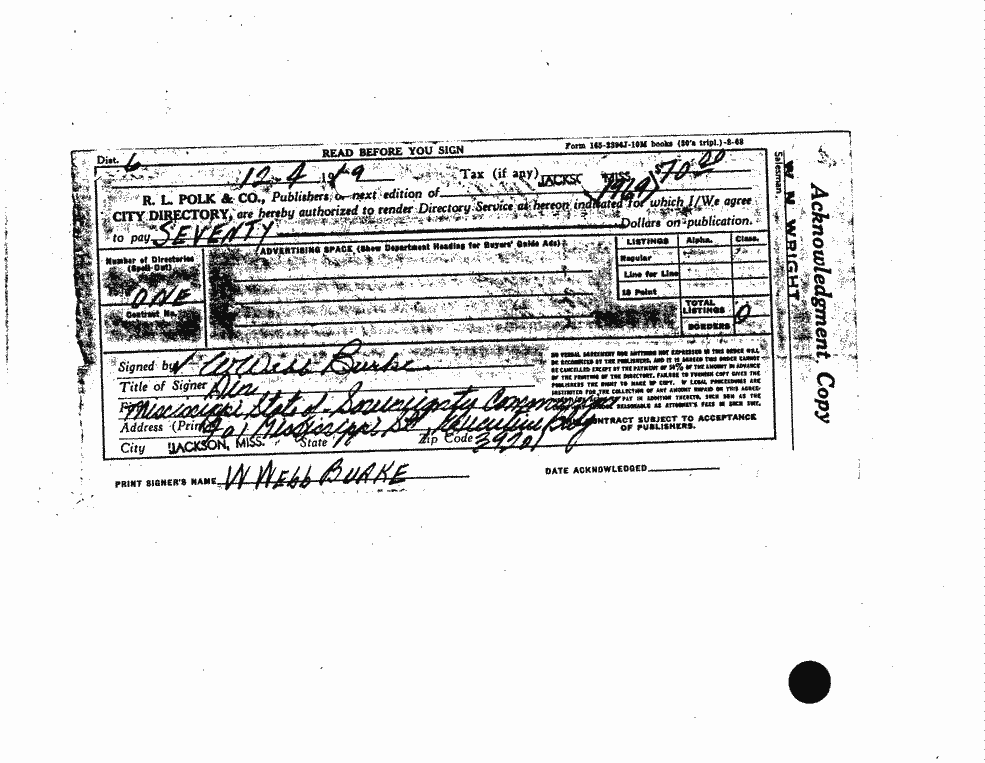 READ BEFORE YOU SIGN
Form 165-3394J-10M books (50's tripl.)-8-68
Dist. 6
12-4 1969 Tax (if any) JACKSON MISS. (1969) $70.00
R. L. POLK & CO., Publishers, or next edition of
CITY DIRECTORY, are hereby authorized to render Directory Service as hereon indicated for which I/We agree
to pay SEVENTY Dollars on publication.
Number of Directories
(Spell Out)
ONE
Contract No.
ADVERTISING SPACE (Show Department Heading for Buyers' Guide Ads):
LISTINGS Alpha. Class.
Regular
Line for Line
10 Point
TOTAL
LISTINGS 0
BORDERS
Signed by W Webb Burke
Title of Signer Dir
NO VERBAL AGREEMENT NOR ANYTHING NOT EXPRESSED IN THIS ORDER WILL
BE RECOGNIZED BY THE PUBLISHERS, AND IT IS AGREED THIS ORDER CANNOT
BE CANCELLED EXCEPT BY THE PAYMENT OF 50% OF THE AMOUNT IN ADVANCE
OF THE PRINTING OF THE DIRECTORY. FAILURE TO FURNISH COPY GIVES THE
PUBLISHERS THE RIGHT TO MAKE UP COPY. IF LEGAL PROCEEDINGS ARE
INSTITUTED FOR THE COLLECTION OF ANY AMOUNT UNPAID ON THIS AGREE-
PAY IN ADDITION THERETO, SUCH SUM AS THE
REASONABLE AS ATTORNEY'S FEES IN SUCH SUIT.
CONTRACT SUBJECT TO ACCEPTANCE
OF PUBLISHERS.
Mississippi State of Sovereignty Commission
Address (Print) 901 Mississippi St, Executive Bldg
City JACKSON, MISS. State Zip Code 39201
PRINT SIGNER'S NAME W WEBB BURKE
DATE ACKNOWLEDGED
Salesman
W N WRIGHT
Acknowledgment Copy